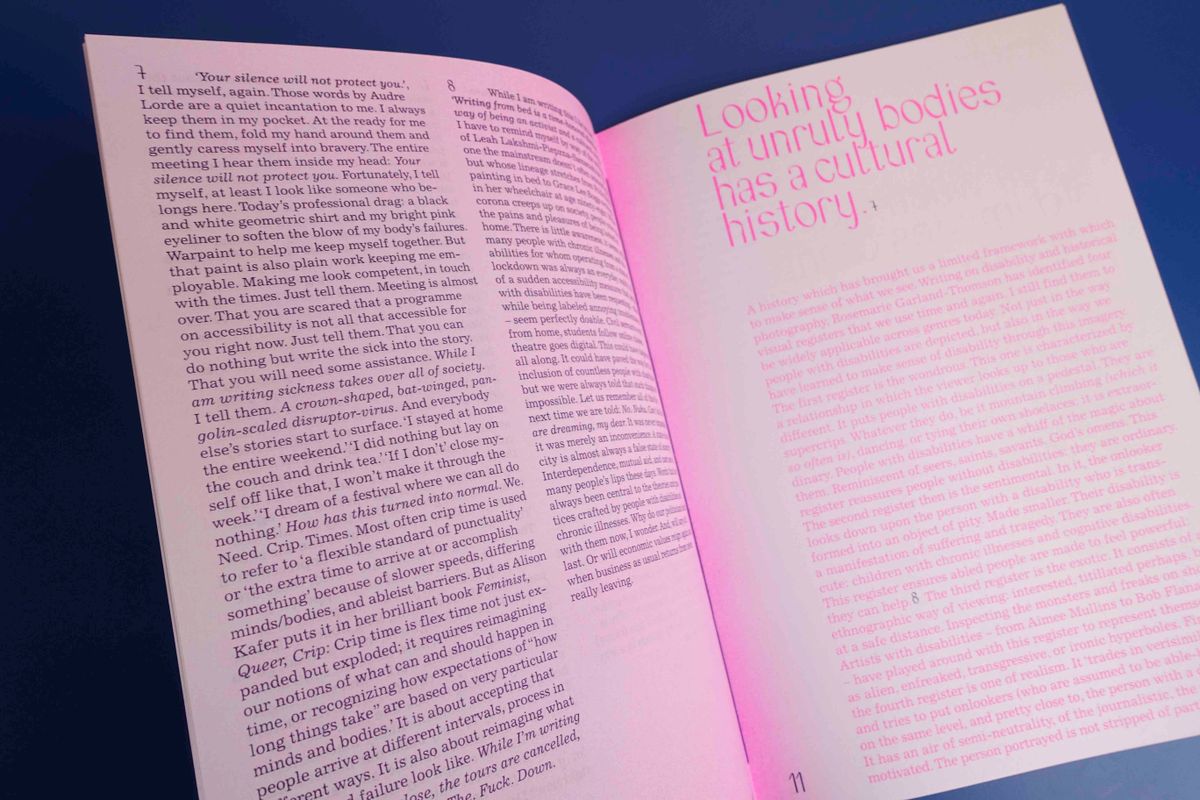 7
'Your silence will not protect you.',
I tell myself, again. Those words by Audre
Lorde are a quiet incantation to me. I always
keep them in my pocket. At the ready for me
to find them, fold my hand around them and
gently caress myself into bravery. The entire
meeting I hear them inside my head: Your
silence will not protect you. Fortunately, I tell
myself, at least I look like someone who be-
longs here. Today's professional drag: a black
and white geometric shirt and my bright pink
eyeliner to soften the blow of my body's failures.
Warpaint to help me keep myself together. But
that paint is also plain work keeping me em-
ployable. Making me look competent, in touch
with the times. Just tell them. Meeting is almost
over. That you are scared that a programme
on accessibility is not all that accessible for
you right now. Just tell them. That you can
do nothing but write the sick into the story.
That you will need some assistance. While I
am writing sickness takes over all of society.
I tell them. A crown-shaped, bat-winged, pan-
golin-scaled disruptor-virus. And everybody
else's stories start to surface. 'I stayed at home
the entire weekend.' 'I did nothing but lay on
the couch and drink tea.' 'If I don't' close my-
self off like that, I won't make it through the
week.' 'I dream of a festival where we can all do
nothing.' How has this turned into normal. We.
Need. Crip. Times. Most often crip time is used
to refer to 'a flexible standard of punctuality'
or 'the extra time to arrive at or accomplish
something' because of slower speeds, differing
minds/bodies, and ableist barriers. But as Alison
Kafer puts it in her brilliant book Feminist,
Queer, Crip: Crip time is flex time not just ex-
panded but exploded; it requires reimagining
our notions of what can and should happen in
time, or recognizing how expectations of "how
long things take" are based on very particular
minds and bodies.' It is about accepting that
people arrive at different intervals, process in
ferent ways. It is also about reimaging what
d failure look like. While I'm writing
lose, the tours are cancelled,
The. Fuck. Down.
8
While I am writing
'Writing from bed is a time-honored
way of being an activist and a
I have to remind myself by way of
of Leah Lakshmi Piepzna-
one the mainstream doesn't often
but whose lineage stretches from
painting in bed to Grace Lee Boggs
in her wheelchair at age
corona creeps up on society, people
the pains and pleasures of being
home. There is little awareness,
many people with chronic illnesses
abilities for whom operating from a
lockdown was always an everyday
of a sudden accessibility measures
with disabilities have been repeatedly
while being labeled annoying
– seem perfectly doable. Civil servants
from home, students follow online
theatre goes digital. This could have
all along. It could have paved the way
inclusion of countless people with
but we were always told that such
impossible. Let us remember all of this
next time we are told: No. Nuhu. Can't
are dreaming, my dear. It was never
it was merely an inconvenience.
city is almost always a false state of
Interdependence, mutual aid, and
many people's lips these days.
always been central to the
tices crafted by people with disabilities
chronic illnesses. Why do our politicians
with them now, I wonder. And will
last. Or will economic values reign
when business as usual returns from
really leaving.
Looking
at unruly bodies
has a cultural
history.7
A history which has brought us a limited framework with which
to make sense of what we see. Writing on disability and historical
photography, Rosemarie Garland-Thomson has identified four
visual registers that we use time and again. I still find them to
be widely applicable across genres today. Not just in the way
people with disabilities are depicted, but also in the way we
have learned to make sense of disability through this imagery.
The first register is the wondrous. This one is characterized by
a relationship in which the viewer looks up to those who are
different. It puts people with disabilities on a pedestal. They are
supercrips. Whatever they do, be it mountain climbing (which it
so often is), dancing, or tying their own shoelaces: it is extraor-
dinary. People with disabilities have a whiff of magic about
them. Reminiscent of seers, saints, savants. God's omens. This
register reassures people without disabilities: they are ordinary.
The second register then is the sentimental. In it, the onlooker
looks down upon the person with a disability who is trans-
formed into an object of pity. Made smaller. Their disability is
a manifestation of suffering and tragedy. They are also often
cute: children with chronic illnesses and cognitive disabilities.
This register ensures abled people are made to feel powerful:
they can help.8 The third register is the exotic. It consists of a
ethnographic way of viewing: interested, titillated perhaps,
at a safe distance. Inspecting the monsters and freaks on sh
Artists with disabilities – from Aimee Mullins to Bob Flan
– have played around with this register to represent them
as alien, enfreaked, transgressive, or ironic hyperboles. F
the fourth register is one of realism. It 'trades in verisim
and tries to put onlookers (who are assumed to be able-b
on the same level, and pretty close to, the person with a
It has an air of semi-neutrality, of the journalistic, the
motivated. The person portrayed is not stripped of part
11